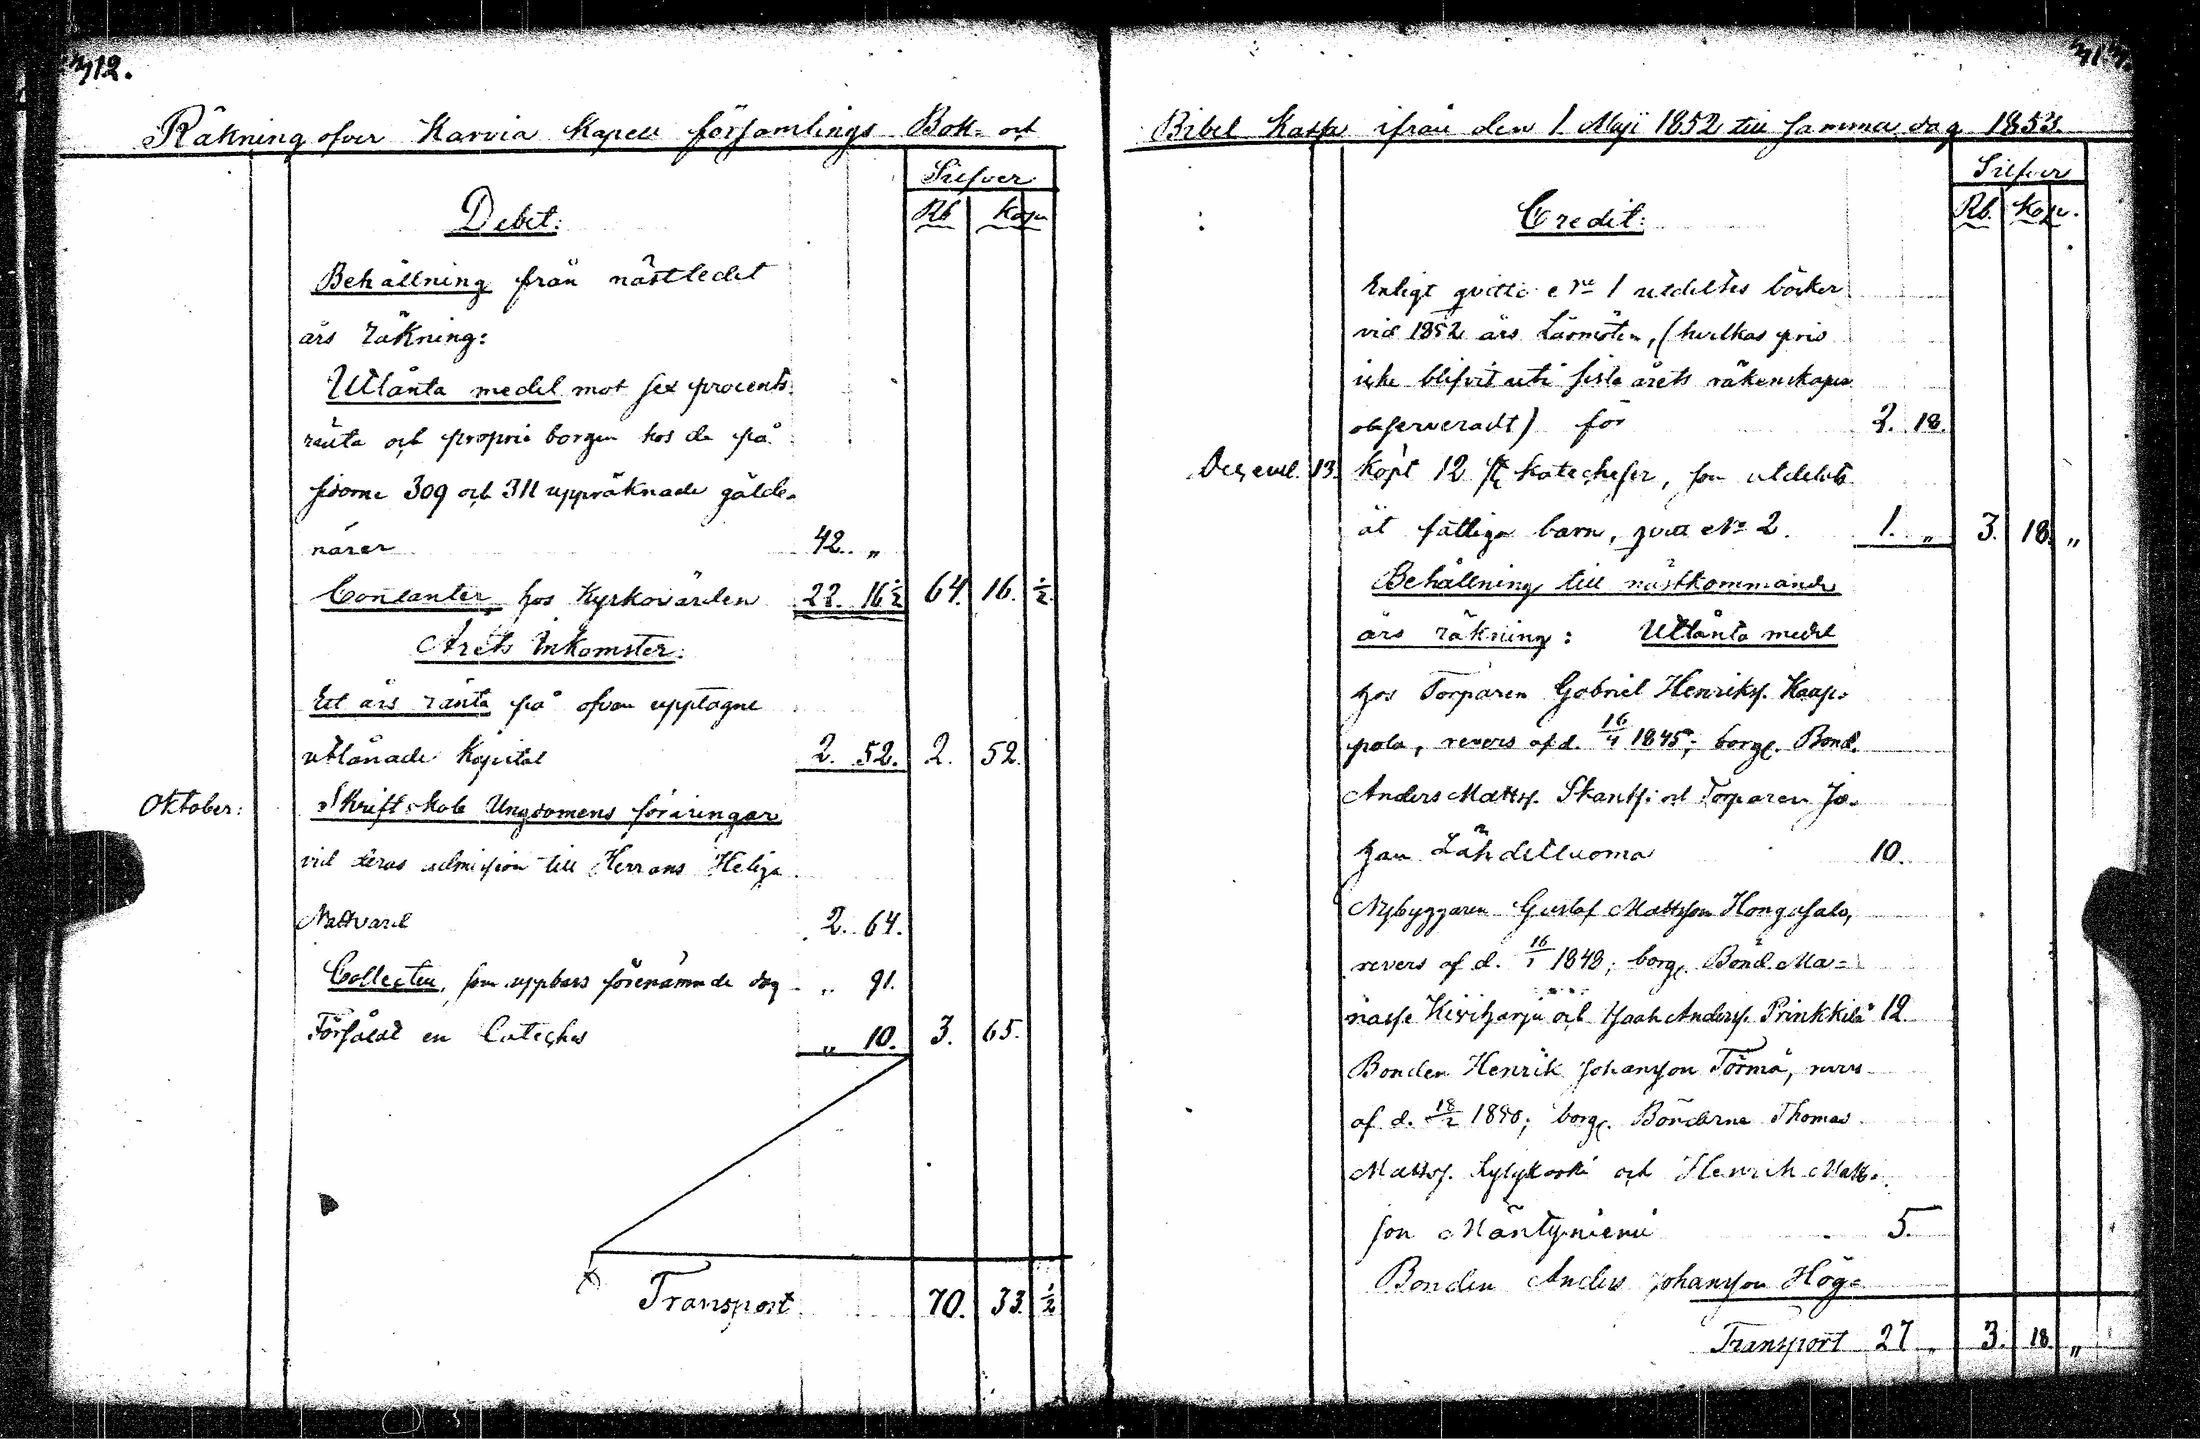 312.
Räkning öfver Karvia Kapell församlings Bok- och
Silfver
Debet:
Rb Kop
Behållning från nästledet
års räkning:
Utlånta medel mot sex procents
ränta och proprie borgen hos de på
sidorne 309 och 311 uppräknade gälde-
närer 42. „
Contanter hos Kyrkovärden 22. 16 1/2 64. 16. 1/2
Årets Inkomster:
Ett års ränta på ofvan upptagne
utlånade Kapital 2. 52. 2. 52.
Oktober: Skriftskole Ungdomens föräringar
vid deras admission till Herrans Heliga
Nattvard 2. 64.
Collecten, som uppbars förenämnde dag „ 91.
Försåldt en Cateches „ 10. 3. 65.
Transport 70. 33. 1/2
Bibel Kassa ifrån den 1 Maji 1852 till samma dag 1853.
Silfver
Credit:
Rb. Kop.
Enligt qvitto No 1 utdeltes böcker
vid 1852 års Läsmöten, (hvilkas pris
icke blifvit uti sista årets räkenskaper
observeradt) för 2. 18.
Decemb. 13. Köpt 12 st Katecheser, som utdelats
åt fattiga barn, qvitt No 2. 1. „ 3. 18. „
Behållning till nästkommande
års räkning: Utlånta medel
hos Torparen Gabriel Henriks. Haapa-
pala, revers af d. 16/4 1845; borg. Bond.
Anders Matts. Skantsi och Torparen Jo-
han Lähdetluoma 10.
Nybyggaren Gustaf Mattsson Hongasalo,
revers af d. 16/1 1848; borg. Bönd. Ma-
nasse Kiviharju och Isaak Anders. Prinkkilä 12.
Bonden Henrik Johansson Törmä, revers
af d. 18/2 1850; borg. Bönderne Thomas
Matts. Kylykoski och Henrik Matts-
son Mäntyniemi 5.
Bonden Anders Johansson Hög-
Transport 27 „ 3. 18 „